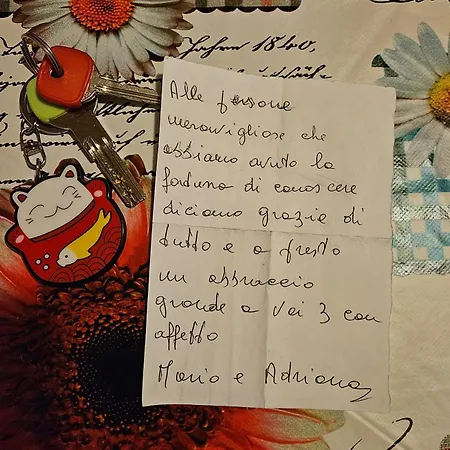 Jahren 1840,
Alle persone
meravigliose che
abbiamo avuto la
fortuna di conoscere
diciamo grazie di
tutto e a presto
un abbraccio
grande a voi 3 con
affetto
Mario e Adriana